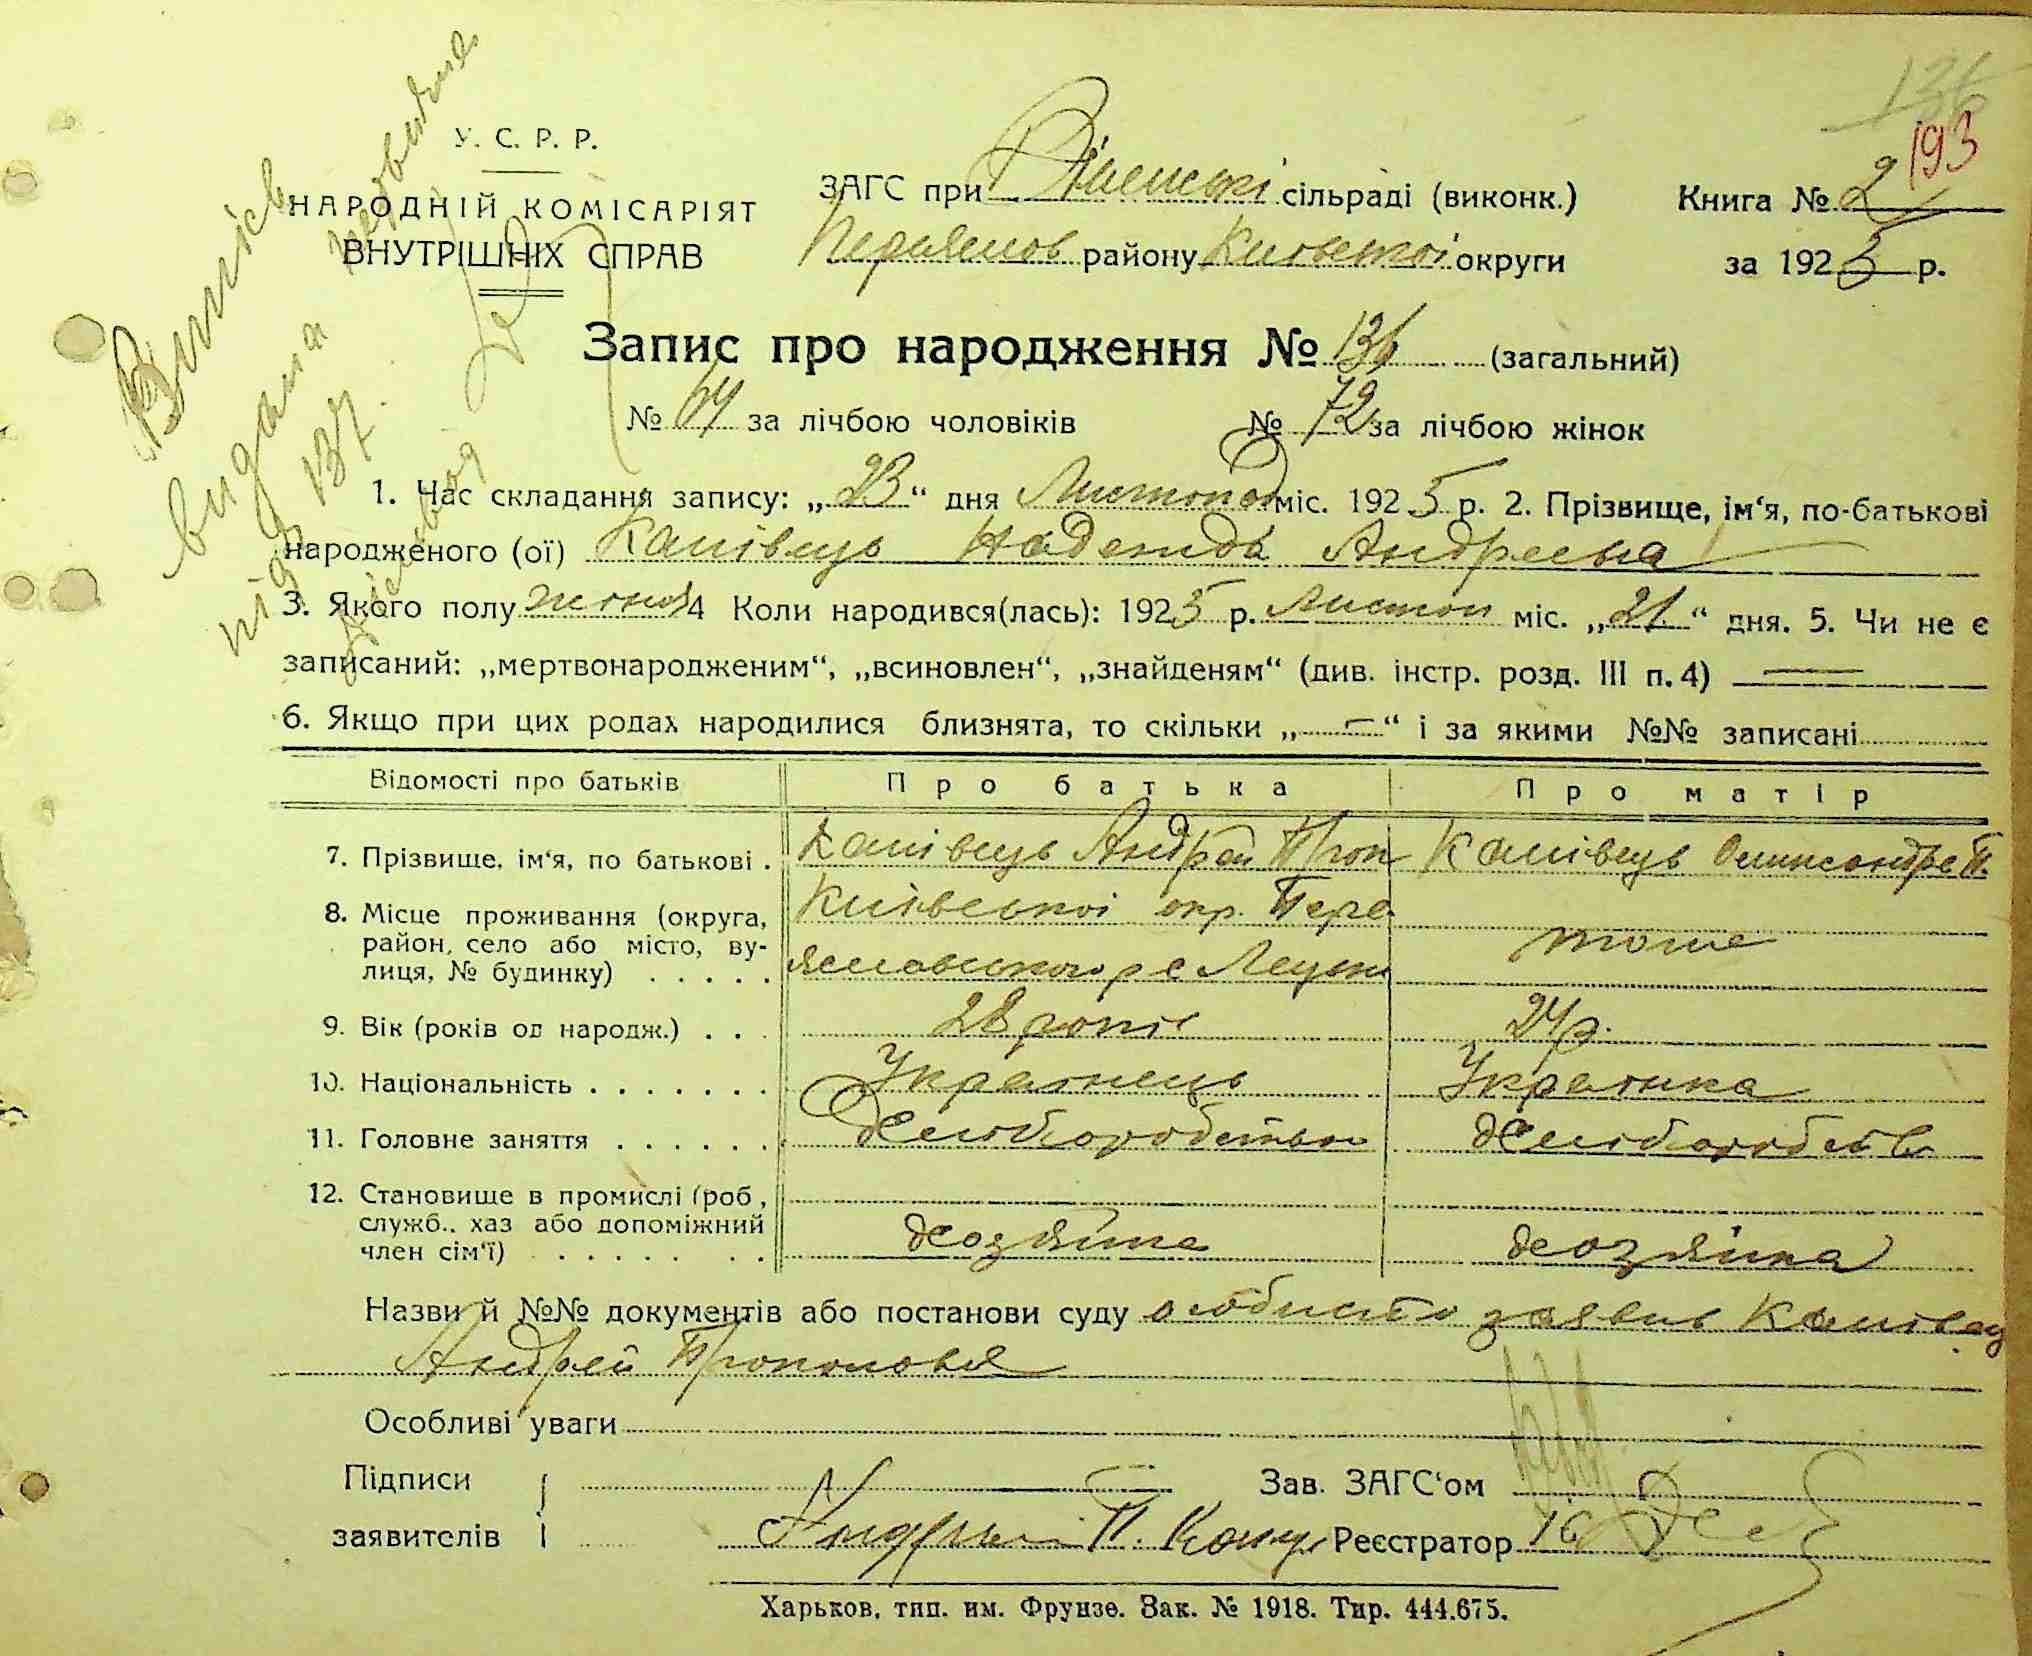 136
193
У. С. Р. Р.
НАРОДНІЙ КОМІСАРІЯТ
ВНУТРІШНІХ СПРАВ
ЗАГС при сільраді (виконк.)
Переяслов району Київської округи
Книга № 2
за 1925 р.
Витяг
видана
під 137.
Запис про народження № 136 (загальний)
№ 64 за лічбою чоловіків № 72 за лічбою жінок
1. Час складання запису: „23“ дня Листопад міс. 1925 р. 2. Прізвище, ім‘я, по-батькові
народженого (ої) Канівець Надежда Андреевна
3. Якого полу жіноч 4 Коли народився(лась): 1925 р. Листоп міс. „21.“ дня. 5. Чи не є
записаний: „мертвонародженим“, „всиновлен“, „знайденям“ (див. інстр. розд. III п. 4) —
6. Якщо при цих родах народилися близнята, то скільки „—“ і за якими №№ записані
Відомості про батьків Про батька Про матір
7. Прізвище, ім‘я, по батькові . Канівець Андрей Прок Канівець Олександра П.
8. Місце проживання (округа, район, село або місто, вулиця, № будинку) . . . . . Київської окр. Переяславського р с тоже
9. Вік (років од народж.) . . 28 років 24 р.
10. Національність . . . . . . . Українець Українка
11. Головне заняття . . . . . . хліборобством хлібороб
12. Становище в промислі (роб, служб.. хаз або допоміжний член сім‘ї) . . . . . . . хозяїна хозяїна
Назви й №№ документів або постанови суду особисто заявив Канівец
Андрей Прокопович
Особливі уваги
Підписи Зав. ЗАГС‘ом
заявителів Андрей П. Реєстратор
Харьков, тип. им. Фрунзе. Зак. № 1918. Тир. 444.675.